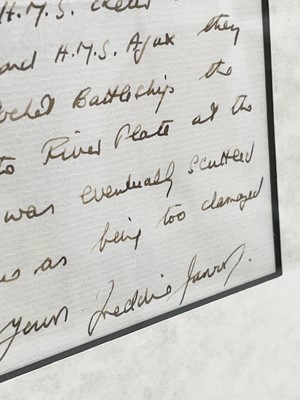 H.M.S. Exeter
and H.M.S. Ajax they
Pocket Battleship the
to River Plate at the
was eventually scuttled
as being too damaged
yours Freddie